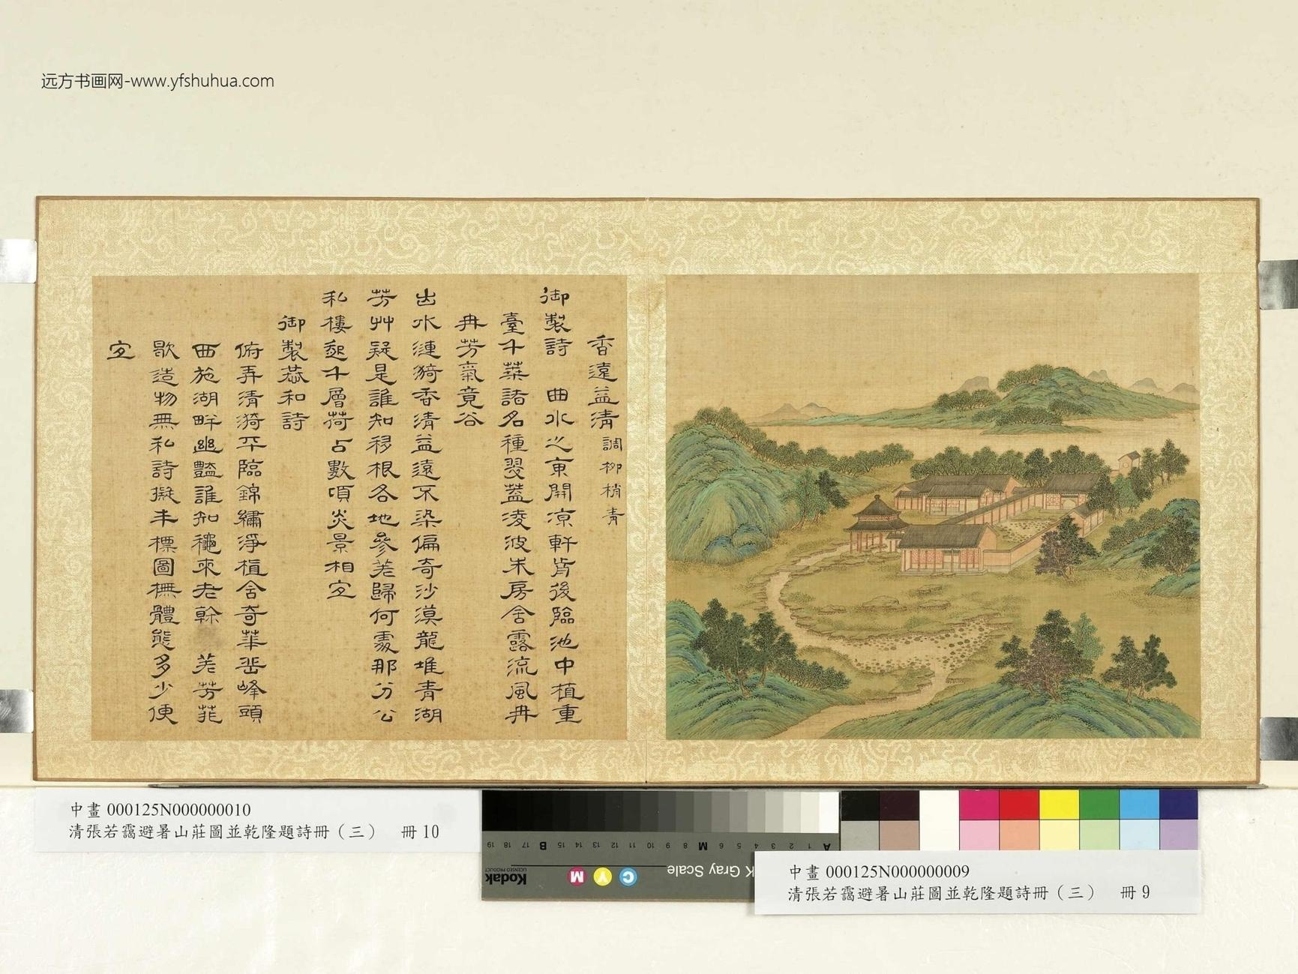 远方书画网-www.yfshuhua.com
香遠益清 調柳梢青
御製詩 曲水之東開涼軒背後臨池中植重
臺千葉諸名種翠蓋凌波朱房含露流風冉
冉芳氣竟谷
出水漣漪香清益遠不染偏奇沙漠龍堆青湖
芳艸疑是誰知移根各地參差歸何處那分公
私樓起千層荷占數頃炎景相宜
御製恭和詩
俯弄清漪平臨錦繡淨植含奇華嶽峰頭
西施湖畔幽豔誰知 穠來老幹 若芳菲
歇造物無私詩擬丰標圖橅體態多少便
宜
中畫 000125N000000010
清張若靄避暑山莊圖並乾隆題詩冊（三） 冊10
19 18 17 16 15 14 13 12 11 10 9 8 M 7 6 5 4 3 2 1 A
Kodak
LICENSED PRODUCT
M Y C
K Gray Scale
中畫 000125N000000009
清張若靄避暑山莊圖並乾隆題詩冊（三） 冊9